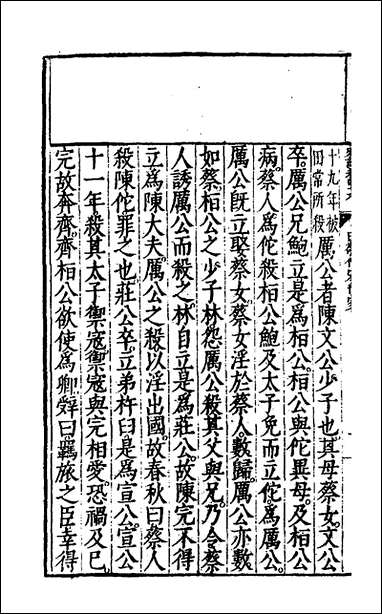 十九年被
田常所殺
厲公者陳文公少子也其母蔡女文公
卒厲公兄鮑立是為桓公桓公與佗異母及桓公
病蔡人為佗殺桓公鮑及太子免而立佗為厲公
厲公既立娶蔡女蔡女淫於蔡人數歸厲公亦數
如蔡桓公之少子林怨厲公殺其父與兄乃令蔡
人誘厲公而殺之林自立是為莊公故陳完不得
立為陳大夫厲公之殺以淫出國故春秋曰蔡人
殺陳佗罪之也莊公卒立弟杵臼是為宣公宣公
十一年殺其太子禦寇禦寇與完相愛恐禍及已
完故奔齊齊桓公欲使為卿辭曰羈旅之臣幸得